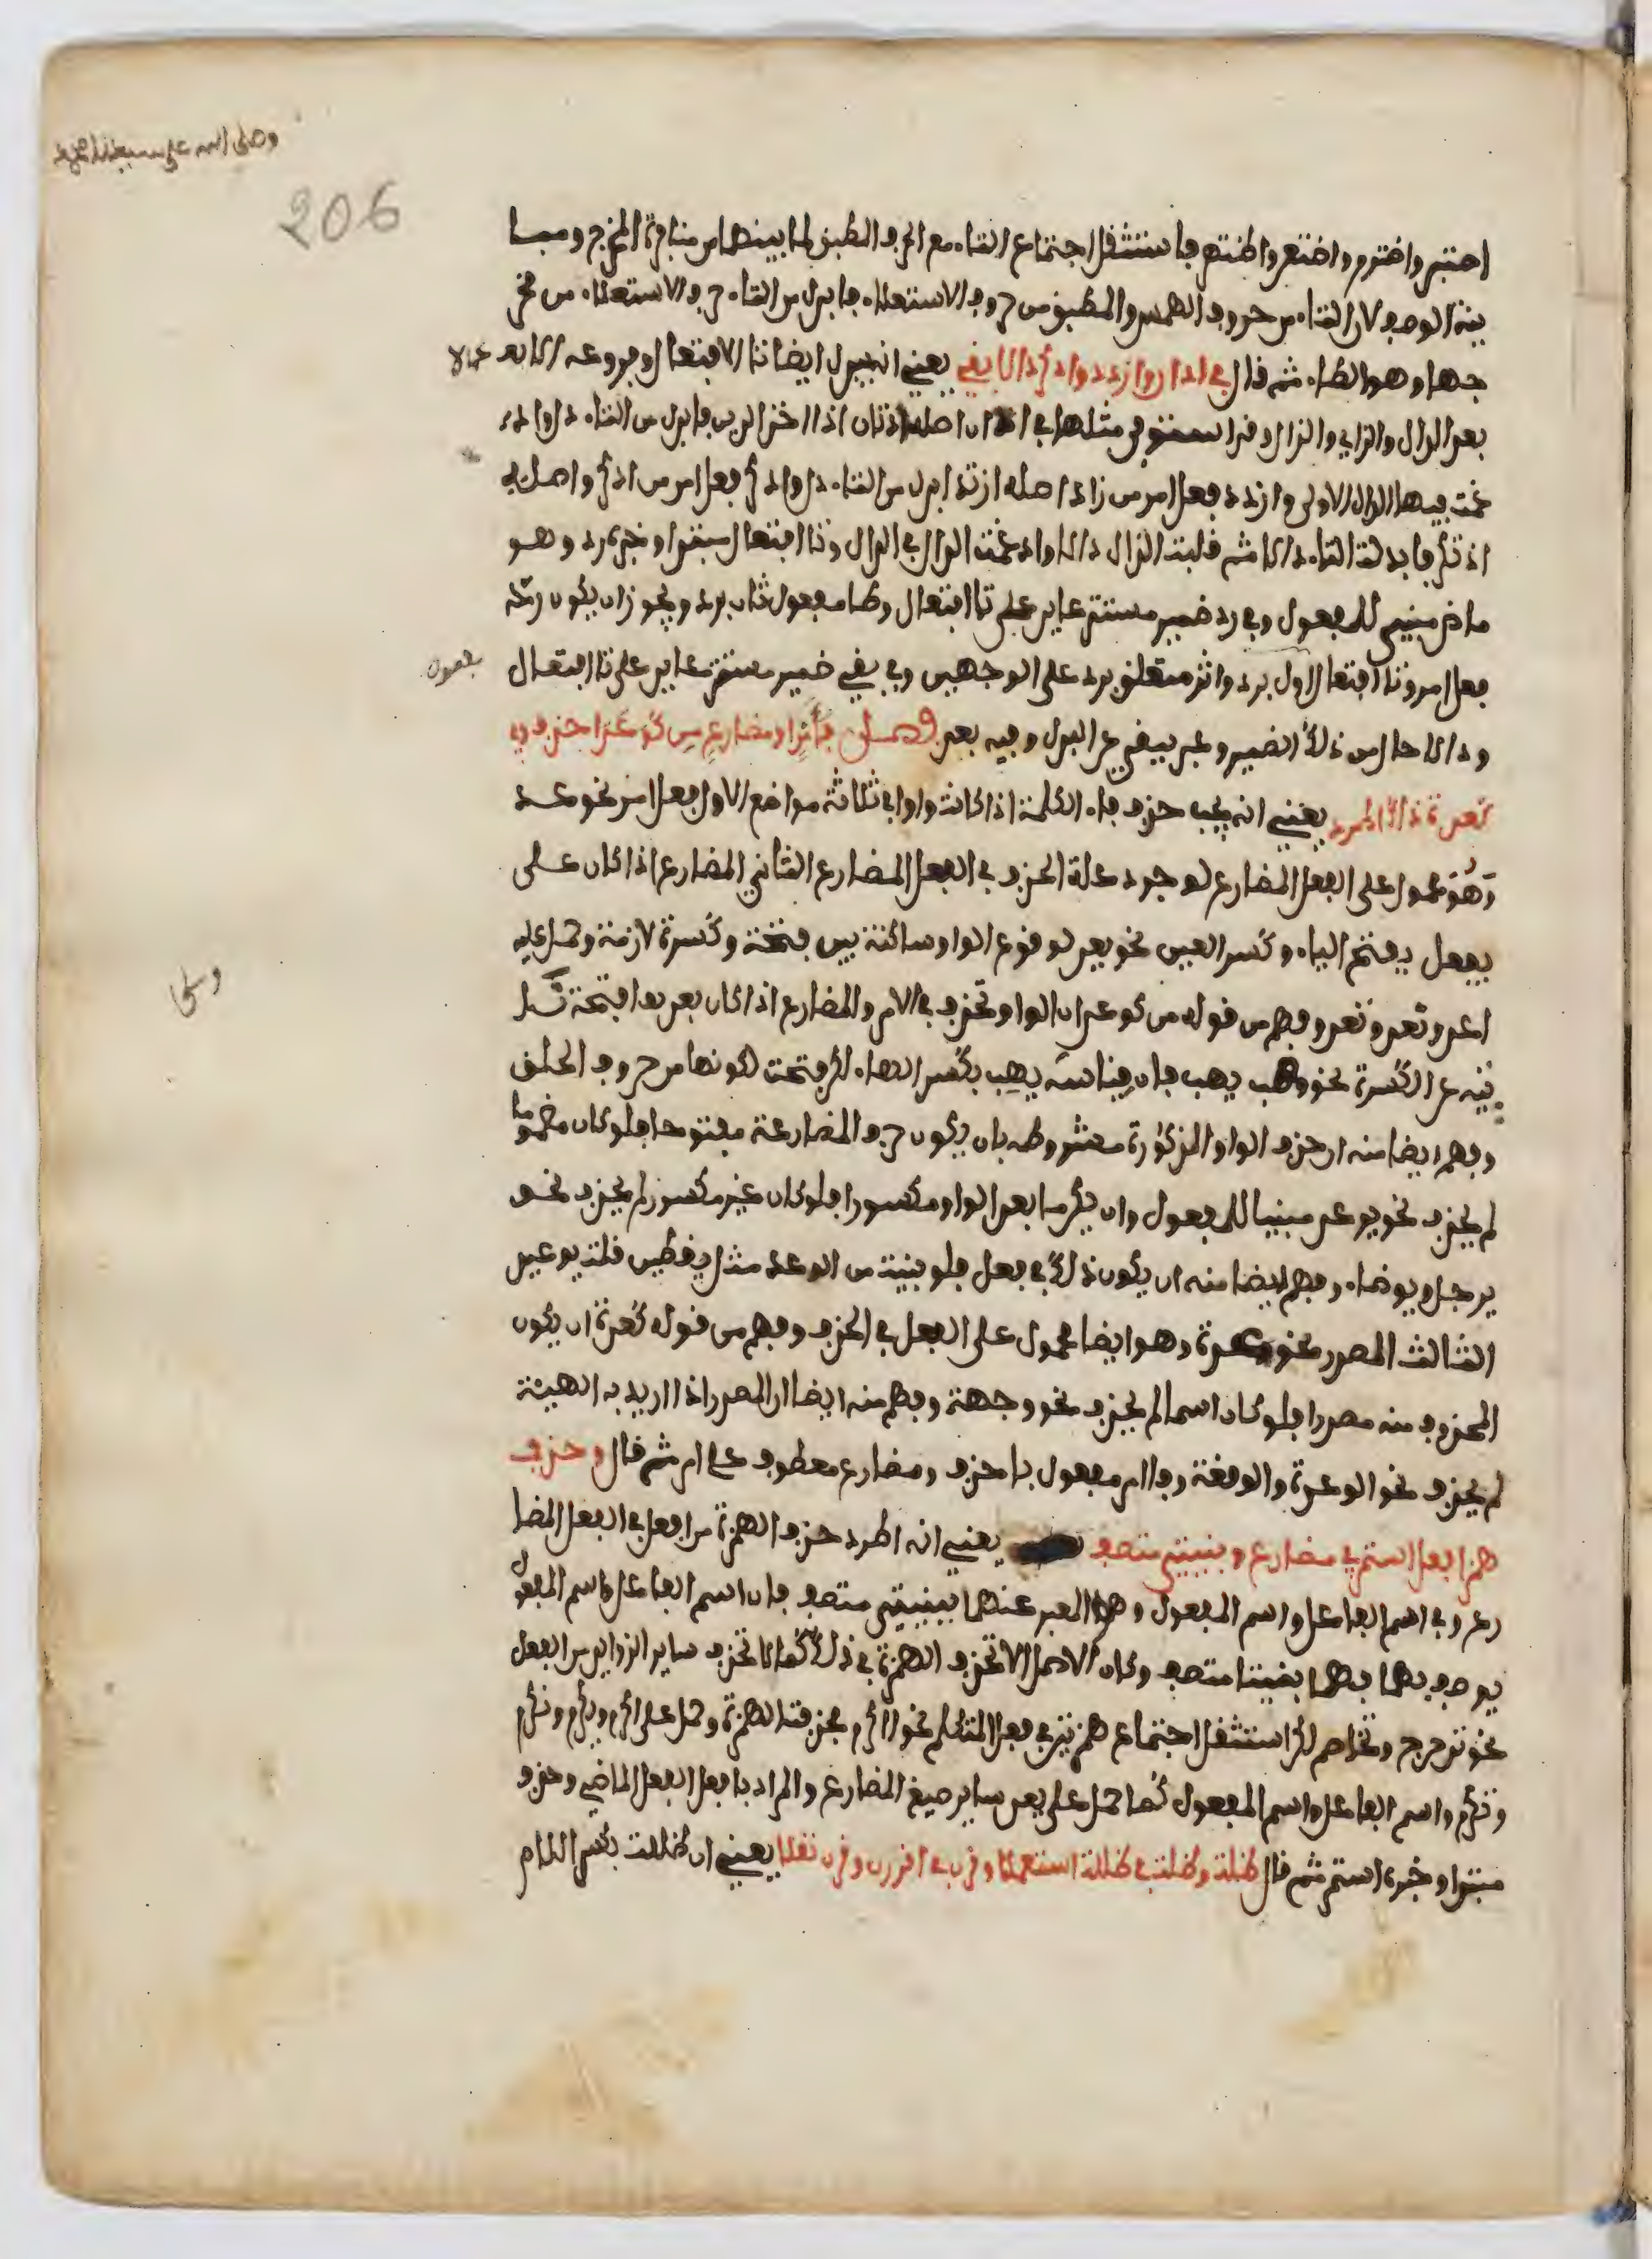 وصلى الله على سيدنا محمد
206
اصتبر واضترم واضتعر واظتهر فاستثقل اجتماع التاء مع الحرف المطبق لما بينهما من منافرة المخرج ومبا
ينة الوصف لان التاء من حروف الهمس والمطبق من حروف الاستعلاء فابدل من التاء حرف الاستعلاء من مخر
جها وهو الطاء ثم قال في ادان وازدد وادكر دالا بقي يعني انه يبدل ايضا تا الافتعال وفروعه دالا
بعد الدال والزاي والذال وقد استوفى مثلها في ادان اصله ادتان اذا اخذ الدين فابدل من التاء دال واد
غمت فيها الدال الاولى وازدد فعل امر من زاد اصله ازتد ابدل من التاء دال وادكر فعل امر من ادكر واصله
اذتكر فابدلت التاء دالا ثم قلبت الذال دالا وادغمت الدال في الدال وتا افتعال مبتدا وخبره رد وهو
ماض مبني للمفعول وفي رد ضمير مستتر عايد على تا افتعال وطا مفعول ثان برد ويجوز ان يكون رد
فعل امر وتا افتعال مفعول اول برد واثر متعلق برد على الوجهين وفي بقي ضمير مستتر عايد على تا افتعال
ودالا حال من ذلك الضمير فصل فا امر او مضارع من كوعد احذف وفي
كعدة ذاك اطرد يعني انه يجب حذف فاء الكلمة اذا كانت واوا في ثلاثة مواضع الاول فعل امر نحو عد
وهو محمول على الفعل المضارع لوجود علة الحذف في الفعل المضارع الثاني المضارع اذا كان على
يفعل بفتح الياء وكسر العين نحو يعد لوقوع الواو ساكنة بين فتحة وكسرة لازمة وحمل عليه
اعد وتعد ونعد وفهم من قوله من كوعد ان الواو تحذف في الامر والمضارع اذا كان بعدها فتحة
نية عن الكسرة نحو وهب يهب فان قياسه يهب بكسر الهاء لكن فتحت لكونها من حروف الحلق
وفهم ايضا منه ان حذف الواو المذكورة مشروطه بان يكون حرف المضارعة مفتوحا فلو كان مضموما
لم يحذف نحو يوعد مبنيا للمفعول وان يكون ما بعد الواو مكسورا فلو كان غير مكسور لم يحذف نحو
يوجل ويوضاء وفهم ايضا منه ان يكون ذلك في فعل فلو بنيت من الوعد مثل يقطين قلت يوعيد
الثالث المصدر نحو عدة وهو ايضا محمول على الفعل في الحذف وفهم من قوله كعدة ان يكون
المحذوف منه مصدرا فلو كان اسما لم يحذف نحو وجهة وفهم منه ايضا ان المصدر اذا اريد به الهيئة
لم يحذف نحو الوعدة والوقفة وفا امر مفعول باحذف ومضارع معطوف على امر ثم قال وحذف
همز افعل استمر في مضارع وبنيتي متصف يعني انه اطرد حذف الهمزة من افعل في الفعل المضا
رع وفي اسم الفاعل واسم المفعول وهو المعبر عنهما ببنيتي متصف فان اسم الفاعل واسم المفعول
يوصف بهما فهما بنيتا متصف وكان الاصل الا تحذف الهمزة في ذلك كما لا تحذف ساير الزوايد من الفعل
نحو تدحرج وتخاصم لكن استثقل اجتماع همزتين في فعل المتكلم نحو اأكرم فحذفت الهمزة وحمل على اكرم ويكرم ونكرم
وتكرم واسم الفاعل واسم المفعول كما حمل على يعد ساير صيغ المضارع والمراد بافعل الفعل الماضي وحذف
مبتدا وخبره استمر ثم قال ظلت وظلت في ظللت استعملا وقرن في اقررن وقرن نقلا يعني ان ظللت بكسر اللام